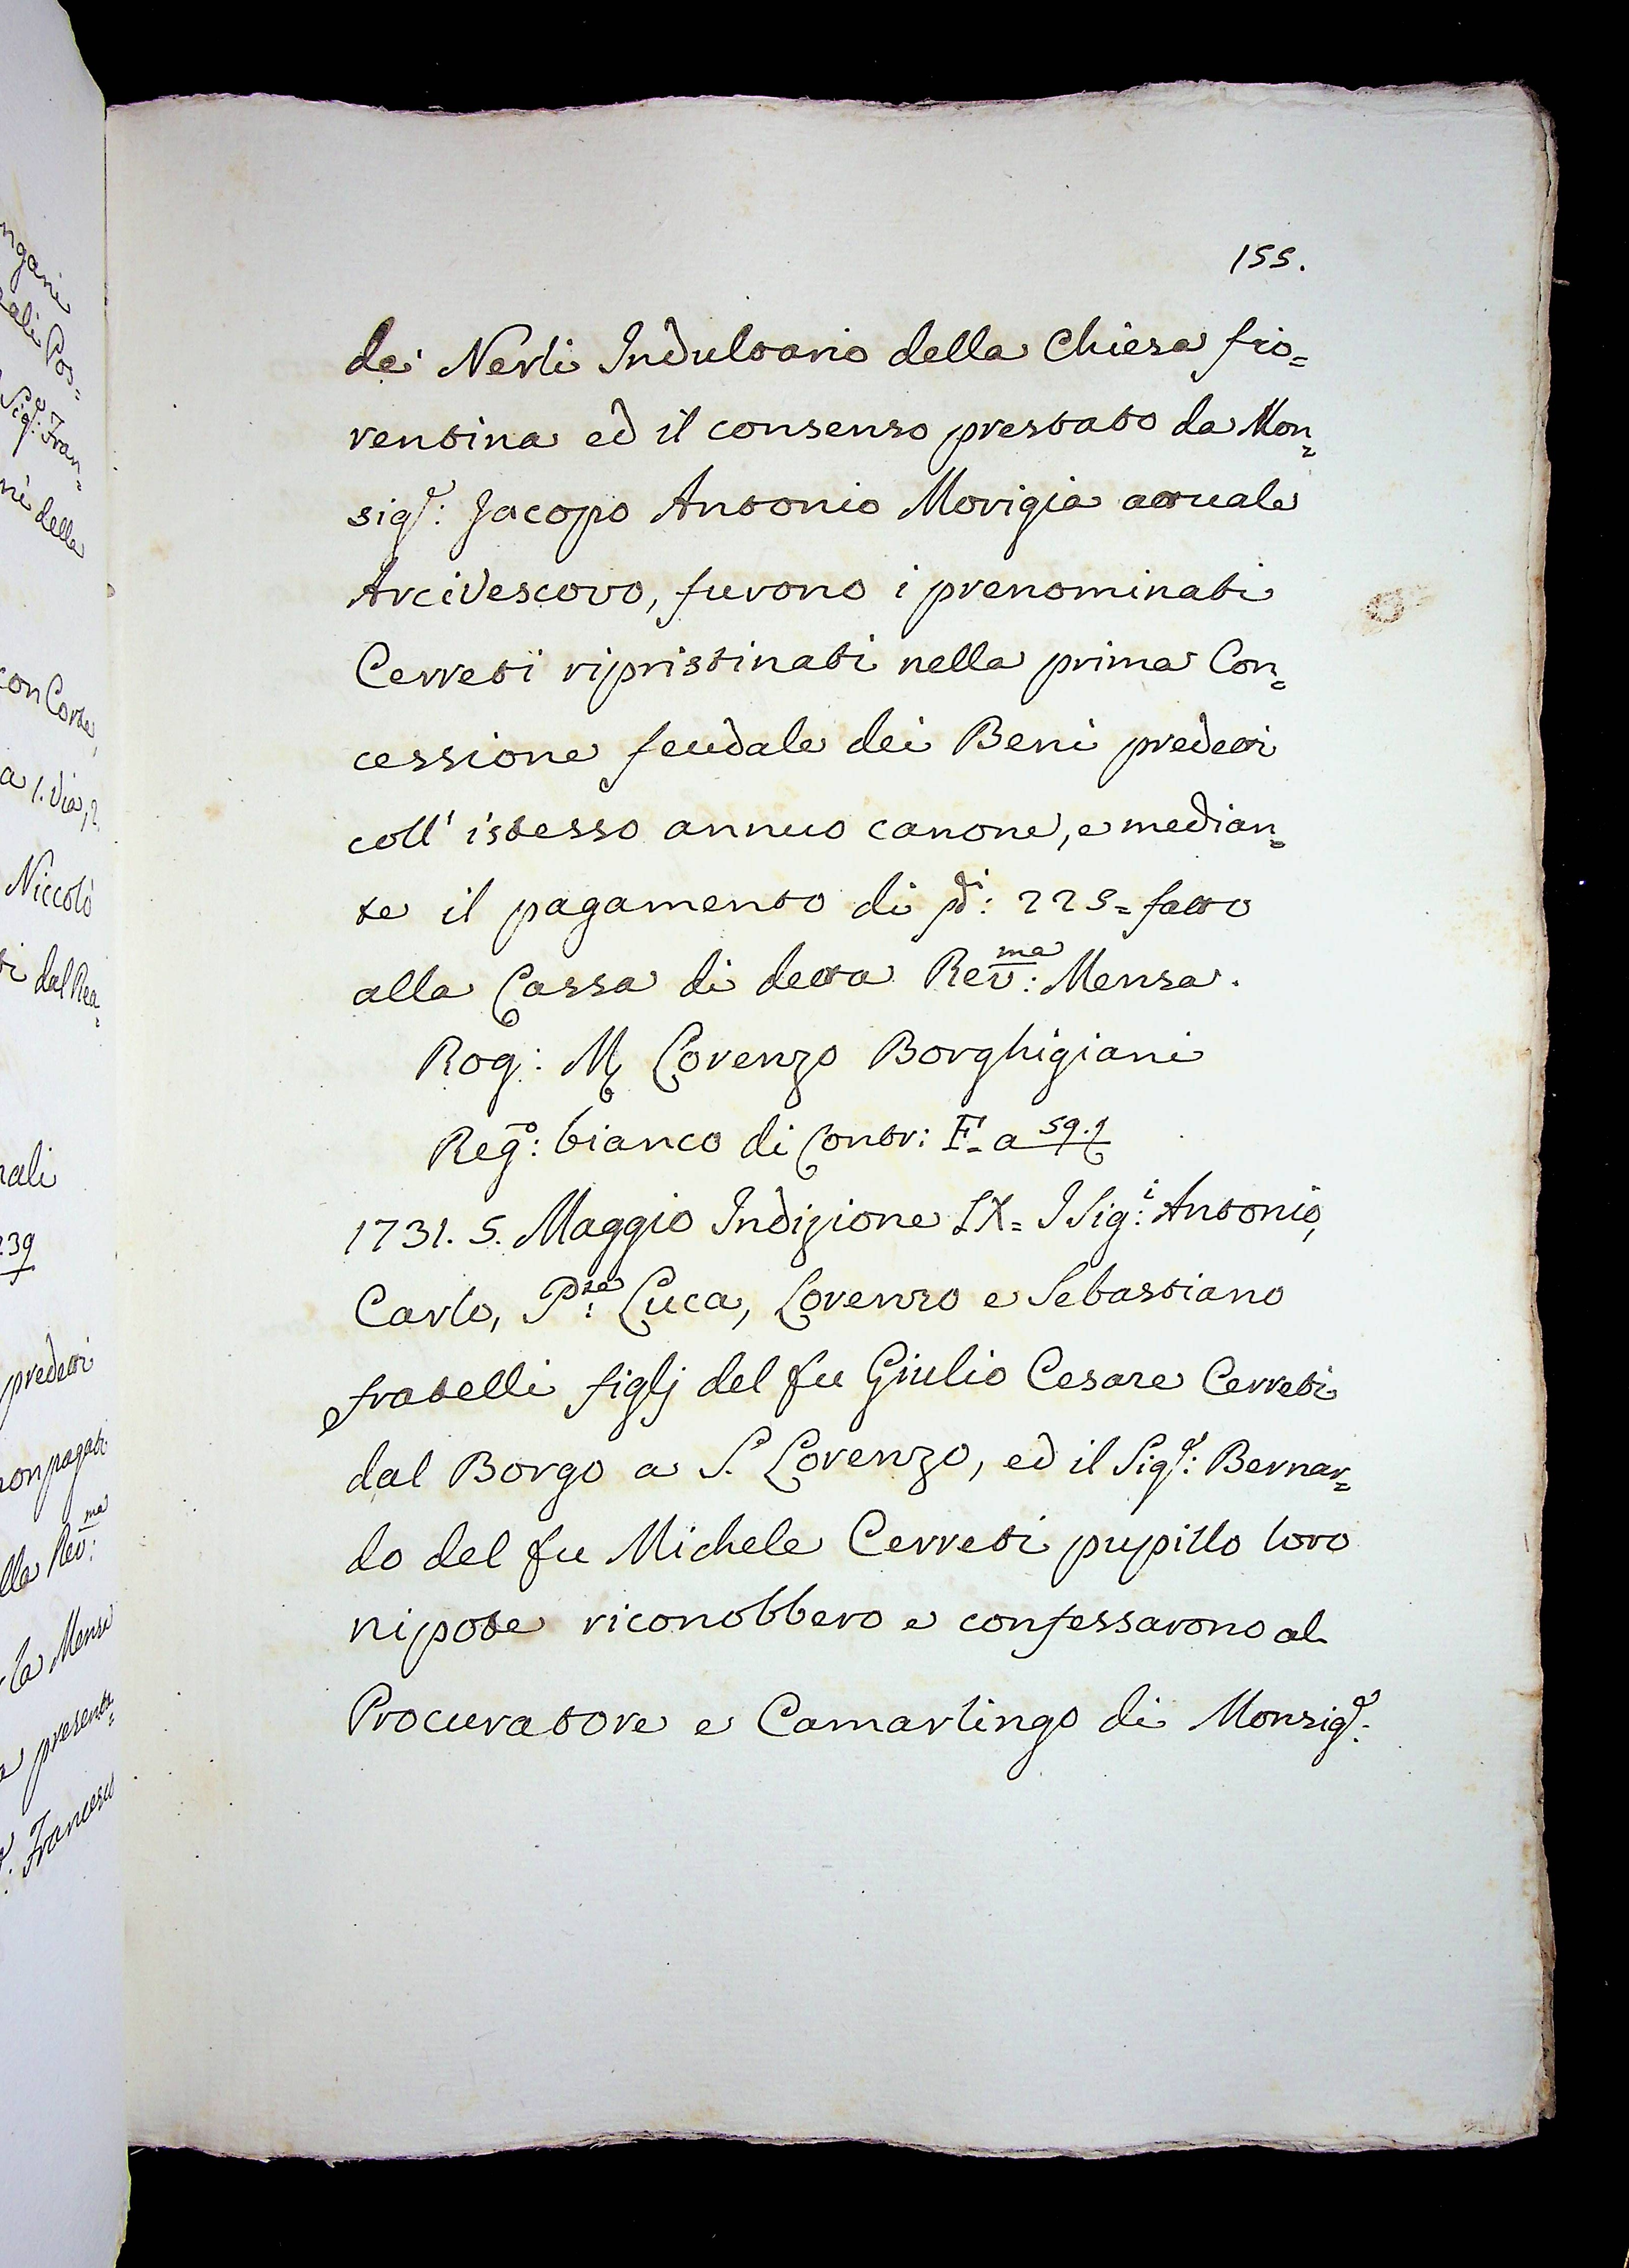 155.
de' Nerli Indultario della Chiesa fio=
rentina ed il consenso prestato da Mon=
sig.r: Jacopo Antonio Morigia attuale
Arcivescovo, furono i prenominati
Cerreti ripristinati nella prima Con=
cessione feudale dei Beni predetti
coll' istesso annuo canone, e median=
te il pagamento di di: 225= fatto
alla Cassa di detta Rev:ma Mensa.
Rog: M Lorenzo Borghigiani
Reg:o bianco di Contr: F= a 59.
1731. 5. Maggio Indizione IX= I Sig:i Antonio,
Carlo, P:te Luca, Lorenzo e Sebastiano
fratelli figlj del fu Giulio Cesare Cerreti
dal Borgo a S. Lorenzo, ed il Sig.r: Bernar=
do del fu Michele Cerreti pupillo loro
nipote riconobbero e confessarono al
Procuratore e Camarlingo di Monsig.r:
ngani
Pos=
Sig.r: Fran=
ni della
con Corte,
a 1. Via, 2.
Niccolò
ti dal Rea=
nali
239
predetti
non pagati
lla Rev:ma
la Mensa
presente=
Francesco